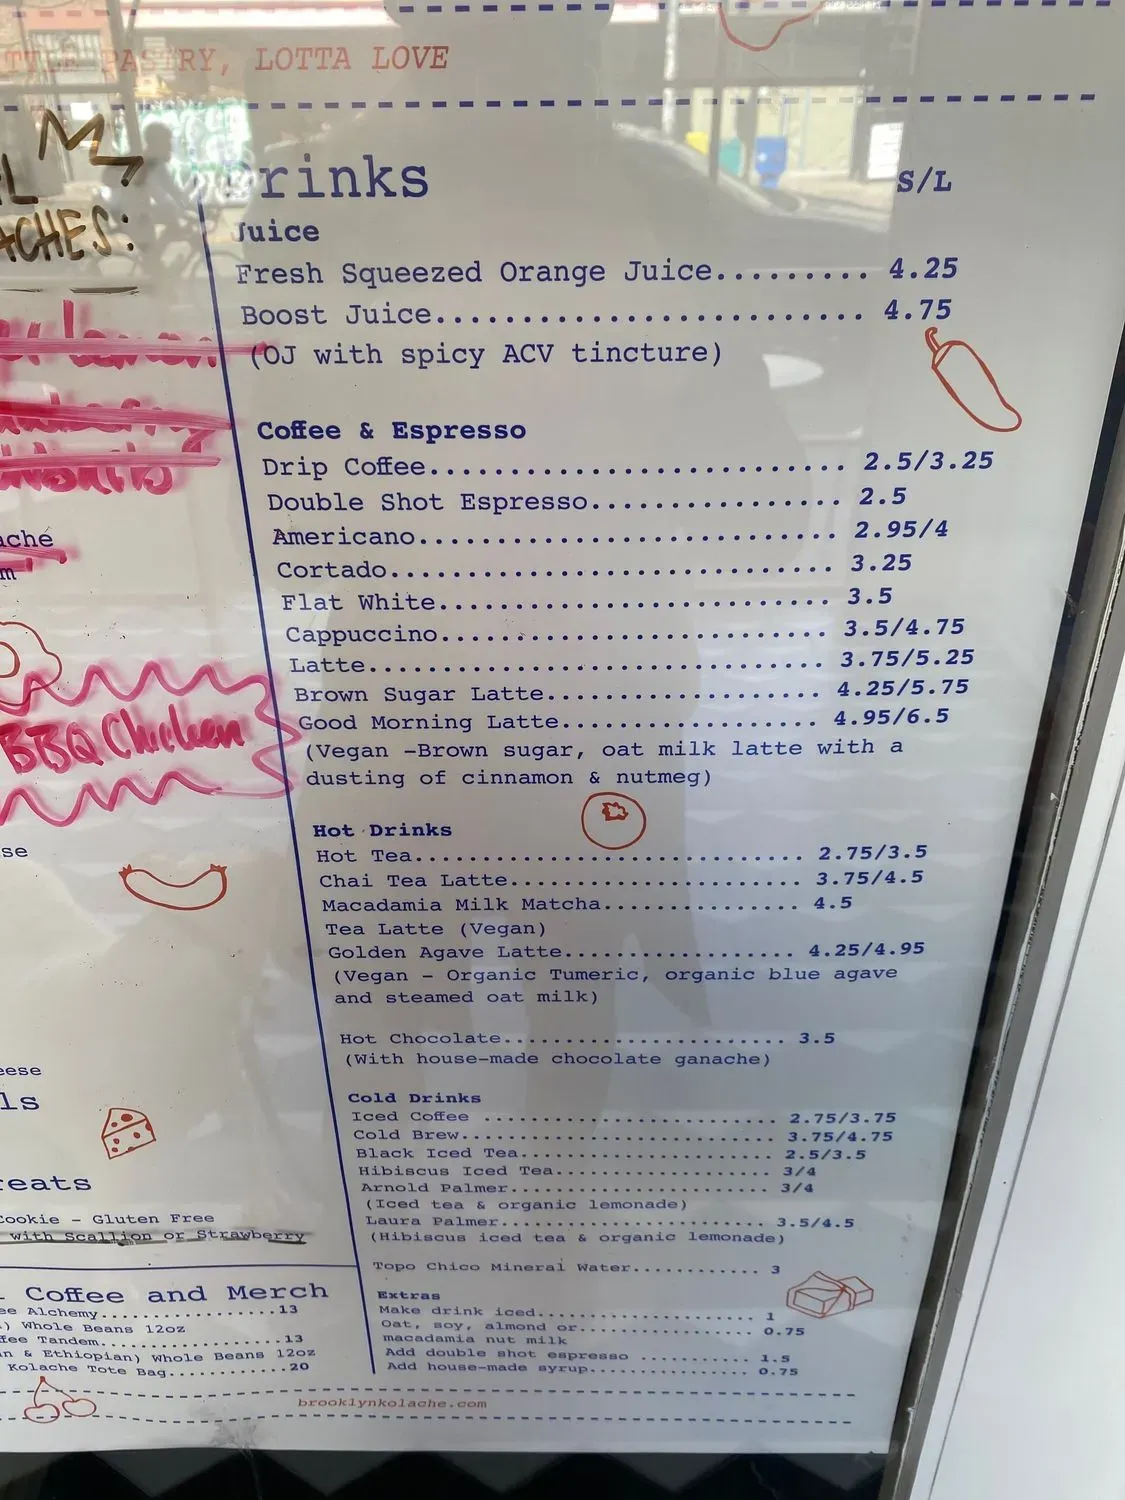 TTLE PASTRY, LOTTA LOVE
L
ACHES:
Drinks S/L
Juice
Fresh Squeezed Orange Juice......... 4.25
Boost Juice......................... 4.75
(OJ with spicy ACV tincture)
Coffee & Espresso
Drip Coffee........................... 2.5/3.25
Double Shot Espresso................ 2.5
Americano............................ 2.95/4
Cortado.............................. 3.25
Flat White.......................... 3.5
Cappuccino.......................... 3.5/4.75
Latte............................... 3.75/5.25
Brown Sugar Latte................... 4.25/5.75
Good Morning Latte.................. 4.95/6.5
(Vegan -Brown sugar, oat milk latte with a
dusting of cinnamon & nutmeg)
Hot Drinks
Hot Tea............................. 2.75/3.5
Chai Tea Latte...................... 3.75/4.5
Macadamia Milk Matcha............... 4.5
Tea Latte (Vegan)
Golden Agave Latte.................. 4.25/4.95
(Vegan - Organic Tumeric, organic blue agave
and steamed oat milk)
Hot Chocolate........................ 3.5
(With house-made chocolate ganache)
Cold Drinks
Iced Coffee ......................... 2.75/3.75
Cold Brew........................... 3.75/4.75
Black Iced Tea...................... 2.5/3.5
Hibiscus Iced Tea................... 3/4
Arnold Palmer....................... 3/4
(Iced tea & organic lemonade)
Laura Palmer........................ 3.5/4.5
(Hibiscus iced tea & organic lemonade)
Topo Chico Mineral Water............ 3
Extras
Make drink iced.................... 1
Oat, soy, almond or................ 0.75
macadamia nut milk
Add double shot espresso .......... 1.5
Add house-made syrup............... 0.75
ache
m
BBQ Chicken
se
eese
ls
reats
Cookie - Gluten Free
with Scallion or Strawberry
Coffee and Merch
ee Alchemy..................13
) Whole Beans 12oz
fee Tandem..................13
n & Ethiopian) Whole Beans 12oz
Kolache Tote Bag............20
brooklynkolache.com